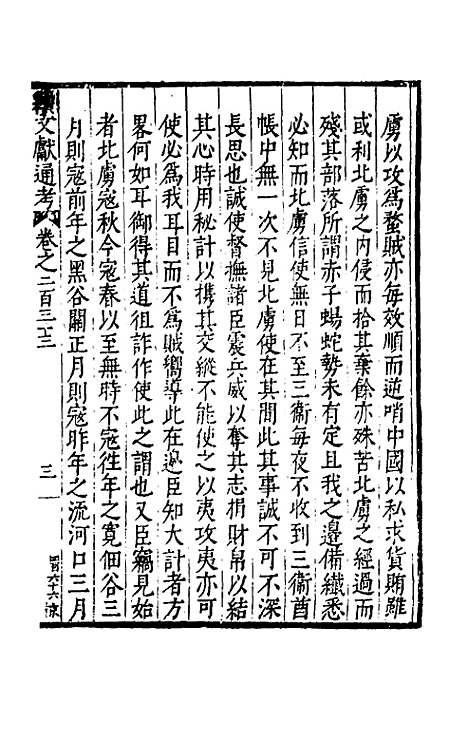 虜以攻爲蝥賊亦每效順而逆哨中國以私求貨賄雖
或利北虜之内侵而拾其棄餘亦殊苦北虜之經過而
殘其部落所謂赤子蜴蛇勢未有定且我之邊備纖悉
必知而北虜信使無日不至三衞每夜不收到三衞酋
帳中無一次不見北虜使在其間此其事誠不可不深
長思也誠使督撫諸臣震兵威以奪其志捐財帛以結
其心時用秘計以携其交縱不能使之以夷攻夷亦可
使必爲我耳目而不爲賊嚮導此在邊臣知大計者方
畧何如耳御得其道徂詐作使此之謂也又臣竊見始
者北虜寇秋今寇春以至無時不寇徃年之寛佃谷三
月則寇前年之黑谷關正月則寇昨年之流河口三月
續文獻通考 卷之二百三十三
三